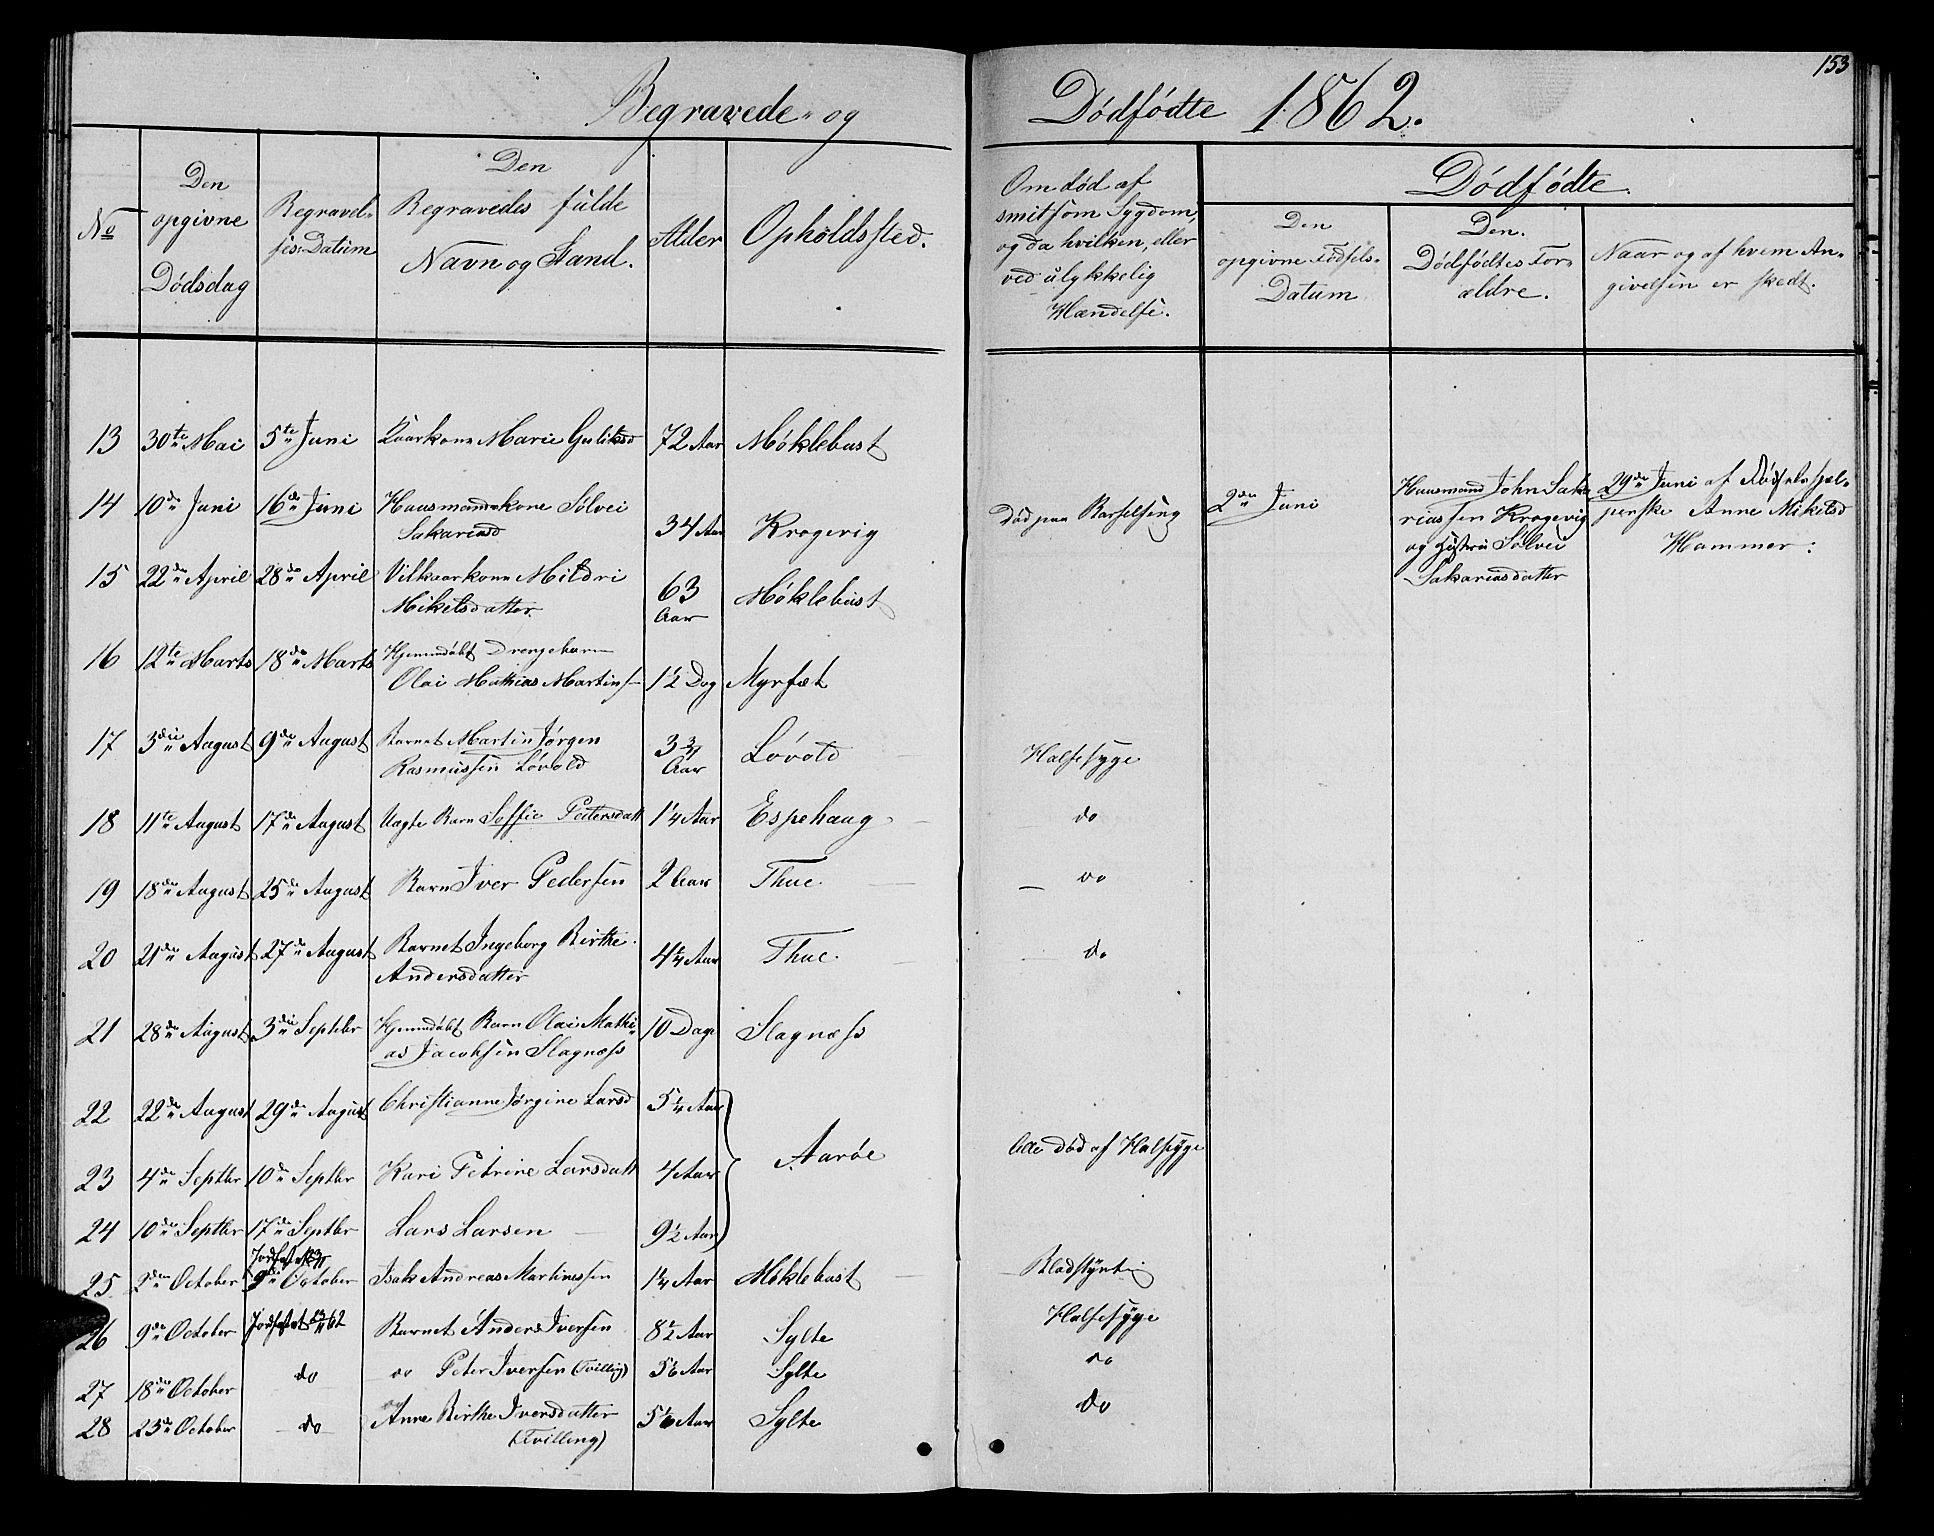 153
Begravede og Dødfødte 1862.
No
Den opgivne Dødsdag
Begravelses-Datum
Den Begravedes fulde Navn og Stand.
Alder
Opholdssted.
Om død af smitsom Sygdom, og da hvilken, eller ved ulykkelig Hændelse.
Dødfødte.
Den opgivne Fødsels-Datum
Den Dødfødtes Forældre.
Naar og af hvem Angivelsen er skedt.
13 30te Mai 5te Juni Kaarkone Marie 72 Aar Møklebust
14 10de Juni 16de Juni Huusmandskone Sølvei Sakariasd 34 Aar Krogevig Død paa Barselseng 2den Juni Huusmand John Sakariassen Krogevig og Hustru Sølvei Sakariasdatter 29de Juni af Fødselshjælperske Anne Mikelsd Hammer:
15 22de April 28de April Vilkaarkone Mildri Mikelsdatter 63 Aar Møklebust
16 12te Marts 18de Marts Hjemmedøbt Drengebarn Olai Mathias Martins 1½ Dag Myrset
17 3die August 9de August Barnet Martin Jørgen Rasmussen Løvold 3¾ Aar Løvold Halsesyge
18 11te August 17de August Uægte Barn Soffie Petersdatt 1¼ Aar Espehaug do
19 18de August 25de August Barn Iver Pedersen 2 Aar Thue do
20 21de August 27de August Barnet Ingeborg Birthe Andersdatter 4¼ Aar Thue. do
21 28de August 3die Septbr Hjemmedøbt Barn Olai Mathias Jacobsen Slagnæss 10 Dage Slagnæss
22 22de August 29de August Christianne Jørgine Larsd 5¼ Aar
23 4de Septbr 10de Septbr Kari Petrine Larsdatt 4 Aar Aarøe Alle død af Halssyge
24 10de Septbr 17de Septbr Lars Larsen 9½ Aar
Jordfæstet
25. 2den October 9de October Isak Andreas Martinussen 1¼ Aar Møklebust Blodstyrtnig
26 9de October Jordfæstet 23/11 62 Barnet Anders Iversen 8½ Aar Sylte Halsesyge
27 18de October do do Peter Iversen (Tvilling) 5⅙ Aar Sylte do
28 23de October do do Anne Birthe Iversdatter (Tvilling) 5⅙ Aar Sylte do